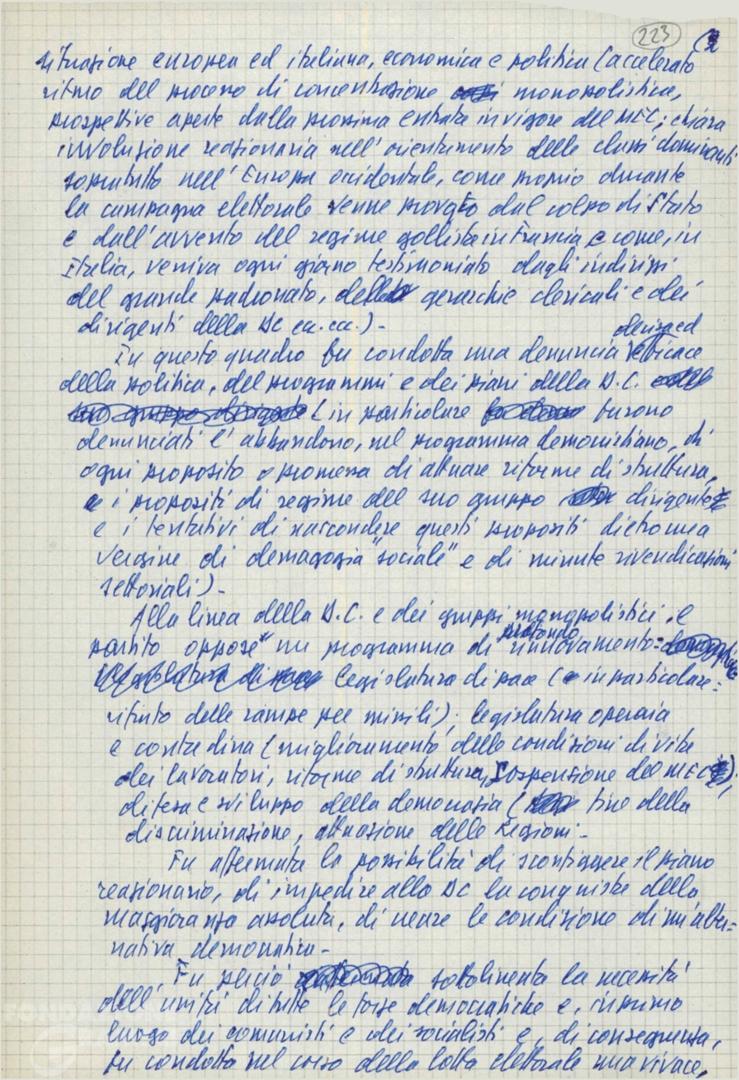 223
situazione europea ed italiana, economica e politica (accelerato
ritmo del processo di concentrazione monopolistica,
prospettive aperte dalla prossima entrata in vigore del MEC; chiara
involuzione reazionaria nell'orientamento delle classi dominanti
soprattutto nell'Europa occidentale, come proprio durante
la campagna elettorale venne provato dal colpo di Stato
e dall'avvento del regime gollista in Francia, e come, in
Italia, veniva ogni giorno testimoniato dagli indirizzi
del grande padronato, delle gerarchie clericali e dei
dirigenti della DC ecc. ecc.) -
In questo quadro fu condotta una denuncia ed efficace
della politica, dei programmi e dei piani della D.C.
(in particolare furono
denunciati l'abbandono, nel programma democristiano, di
ogni proposito o promessa di attuare riforme di struttura,
e i propositi di regime del suo gruppo dirigente
e i tentativi di nascondere questi propositi dietro una
vergine di demagogia "sociale" e di minute rivendicazioni
settoriali) -
Alla linea della D.C. e dei gruppi monopolistici il
partito oppose un programma di profondo rinnovamento:
legislatura di pace (in particolare:
rifiuto delle rampe per missili); legislatura operaia
e contadina (miglioramento delle condizioni di vita
dei lavoratori, riforme di struttura, sospensione del MEC);
difesa e sviluppo della democrazia (fine della
discriminazione, attuazione delle Regioni -
Fu affermata la possibilità di sconfiggere il piano
reazionario, di impedire alla DC la conquista della
maggioranza assoluta, di creare le condizione di un'alter=
nativa democratica -
Fu perciò sottolineata la necessità
dell'unità di tutte le forze democratiche e, in primo
luogo dei comunisti e dei socialisti e, di conseguenza,
fu condotta nel corso della lotta elettorale una vivace,